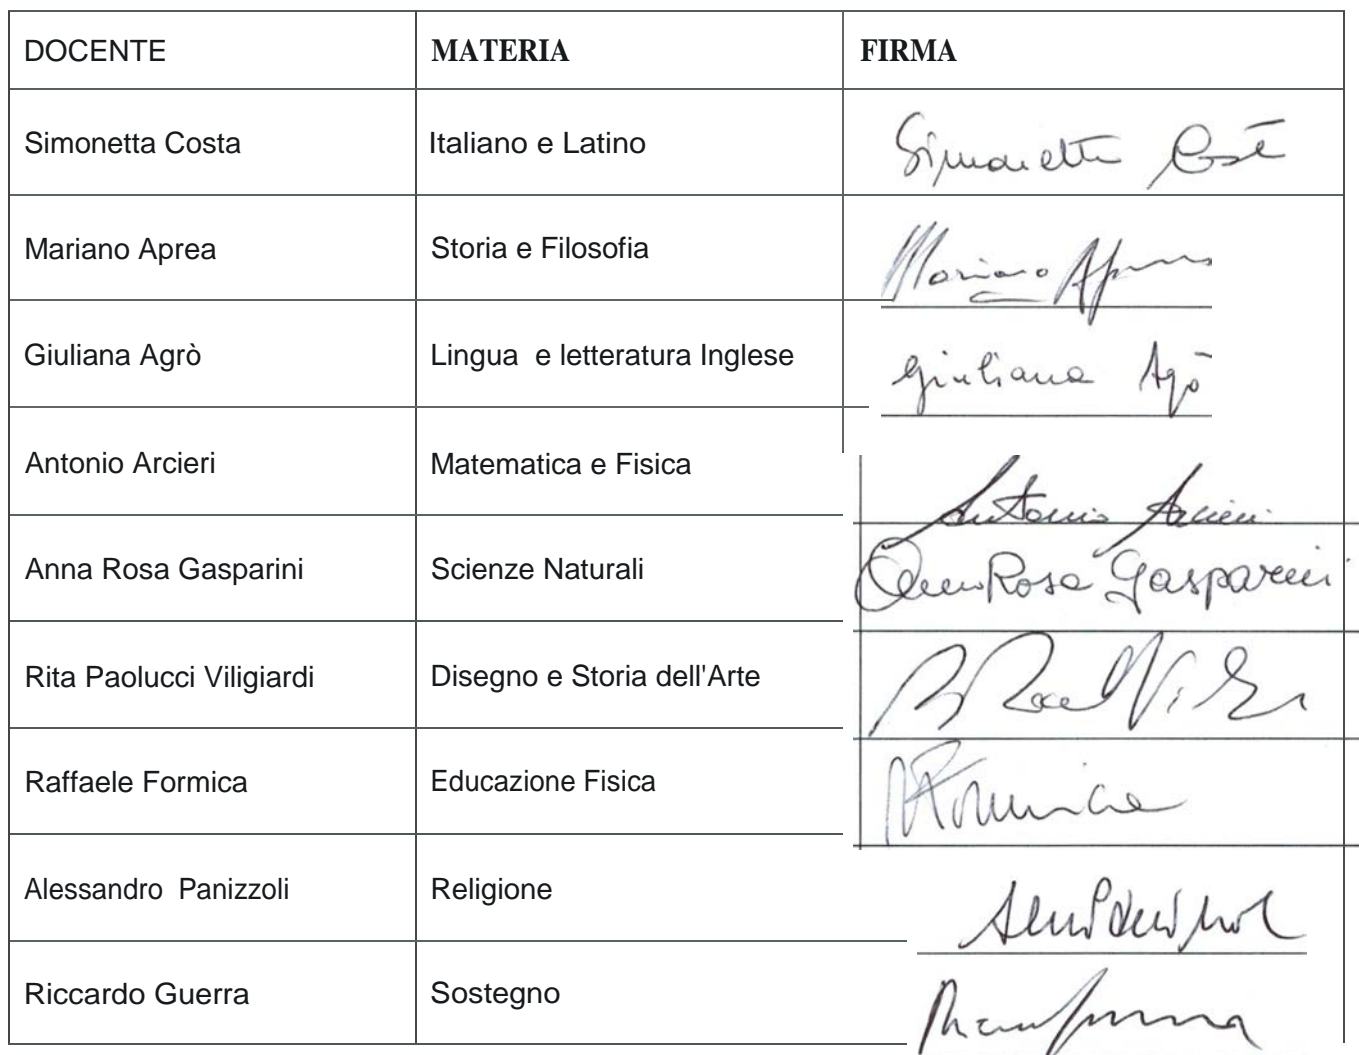 DOCENTE MATERIA FIRMA
Simonetta Costa Italiano e Latino Simonetta Costa
Mariano Aprea Storia e Filosofia Mariano Aprea
Giuliana Agrò Lingua e letteratura Inglese Giuliana Agrò
Antonio Arcieri Matematica e Fisica Antonio Arcieri
Anna Rosa Gasparini Scienze Naturali Anna Rosa Gasparini
Rita Paolucci Viligiardi Disegno e Storia dell'Arte
Raffaele Formica Educazione Fisica
Alessandro Panizzoli Religione
Riccardo Guerra Sostegno